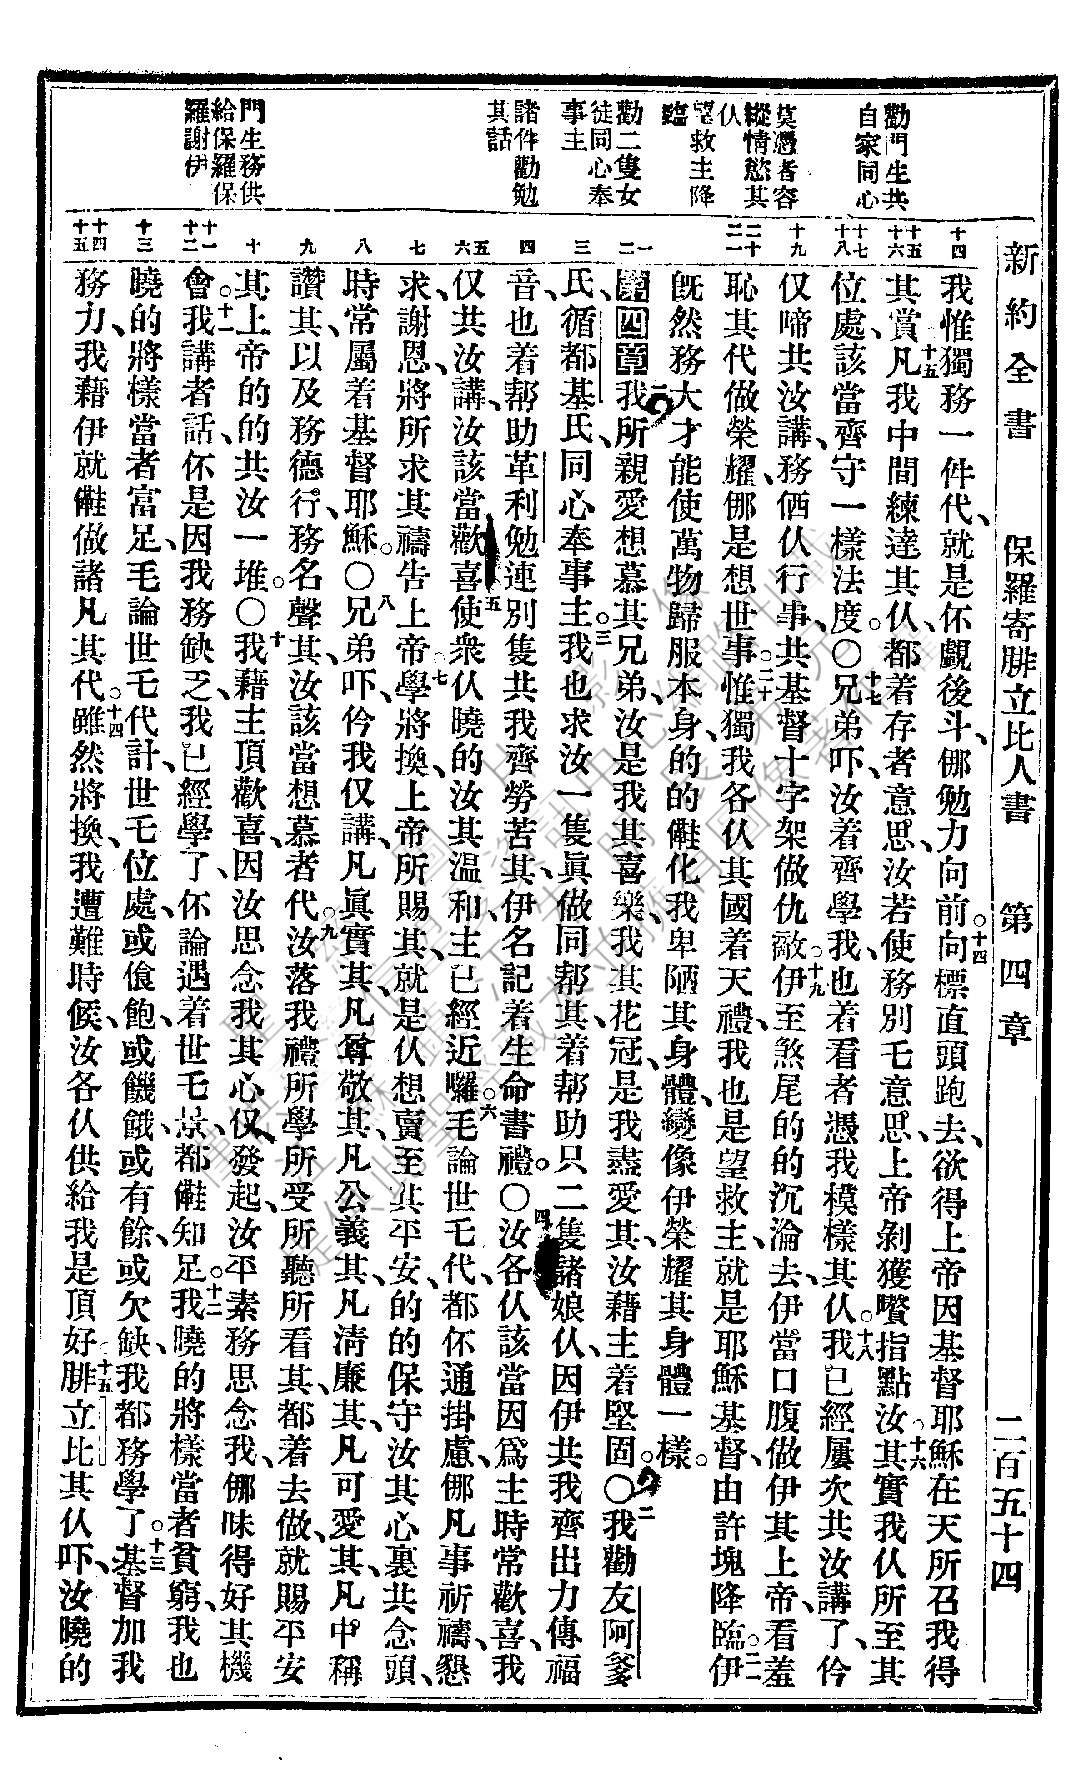 新約全書 保羅寄腓立比人書 第四章 二百五十四
勸門生共
自家同心
莫憑者容
縱情慾其
仪
望救主降
臨
勸二隻女
徒同心奉
事主
諸件勸勉
其話
門生務供
給保羅保
羅謝伊
十四
十五
十六
十七
十八
十九
二十
二一
一
二
三
四
五
六
七
八
九
十
十一
十二
十三
十四
十五
我惟獨務一件代、就是伓覷後斗、㑚勉力向前。十四向標直頭跑去、欲得上帝因基督耶穌在天所召我得
其賞。十五凡我中間練達其仪、都着存者意思、汝若使務別乇意思、上帝剝獲嚽指點汝。十六其實我仪所至其
位處、該當齊守一樣法度。〇十七兄弟吓、汝着齊學我、也着看者憑我模樣其仪。十八我已經屢次共汝講了、仱
仅啼共汝講、務価仪行事、共基督十字架做仇敵。十九伊至煞尾的的沉淪去、伊當口腹做伊其上帝、看羞
恥其代做榮耀、㑚是想世事。二十惟獨我各仪其國着天禮、我也是望救主、就是耶穌基督、由許塊降臨。二一伊
旣然務大才能使萬物歸服本身、的的㒕化我卑陋其身體、變像伊榮耀其身體一樣。
第四章 一我所親愛想慕其兄弟、汝是我其喜樂、我其花冠、是我盡愛其、汝藉主着堅固。〇二我勸友阿爹
氏、循都基氏、同心奉事主。三我也求汝一隻眞做同帮其、着帮助只二隻諸娘仪、因伊共我齊出力傳福
音、也着帮助革利勉、連別隻共我齊勞苦其、伊名記着生命書禮。〇四汝各仪該當因爲主時常歡喜、我
仅共汝講、汝該當歡喜。五使衆仪曉的汝其溫和、主已經近囉。六毛論世乇代、都伓通掛慮、㑚凡事祈禱、懇
求、謝恩、將所求其禱告上帝。七學將換、上帝所賜其、就是仪想賣至其平安、的的保守汝其心裏共念頭、
時常屬着基督耶穌。〇八兄弟吓、仱我仅講、凡眞實其、凡尊敬其、凡公義其、凡淸廉其、凡可愛其、凡中稱
讚其、以及務德行、務名聲其、汝該當想慕者代。九汝落我禮所學所受所聽所看其、都着去做、就賜平安
其上帝的的共汝一堆。〇十我藉主頂歡喜、因汝思念我其心仅發起、汝平素務思念我、㑚味得好其機
會。十一我講者話、伓是因我務缺乏、我已經學了、伓論遇着世乇景、都㒕知足。十二我曉的將樣當者貧窮、我也
曉的將樣當者富足、毛論世乇代計、世乇位處、或偹飽、或饑餓、或有餘、或欠缺、我都務學了。十三基督加我
務力、我藉伊就㒕做諸凡其代。十四雖然將換、我遭難時候、汝各仪供給我是頂好。十五腓立比其仪吓、汝曉的